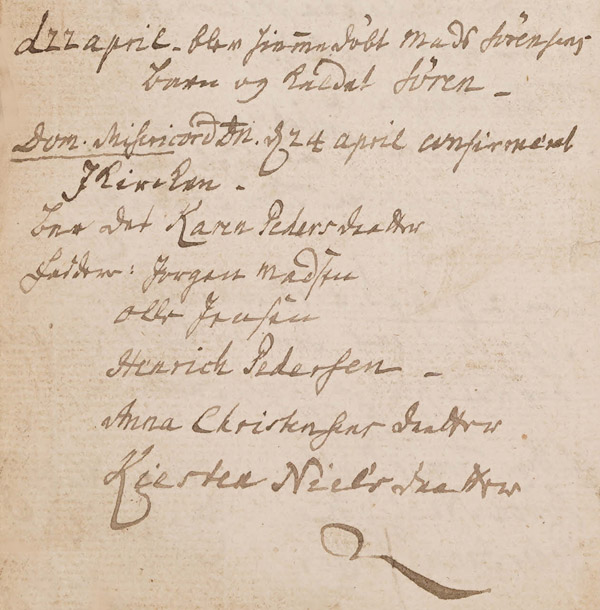 d 22 april - blev hiemmedöbt Mads Sörensens
barn og kaldet Sören -
Dom. Misericord Dn. d 24 april confirmeret
J Kircken -
bar det Karen Pedersdaatter
Faddere: Jorgen Madsen
Olle Jensen
Henrich Pedersen -
Anna Christensens daatter
Kiersten Niels daatter